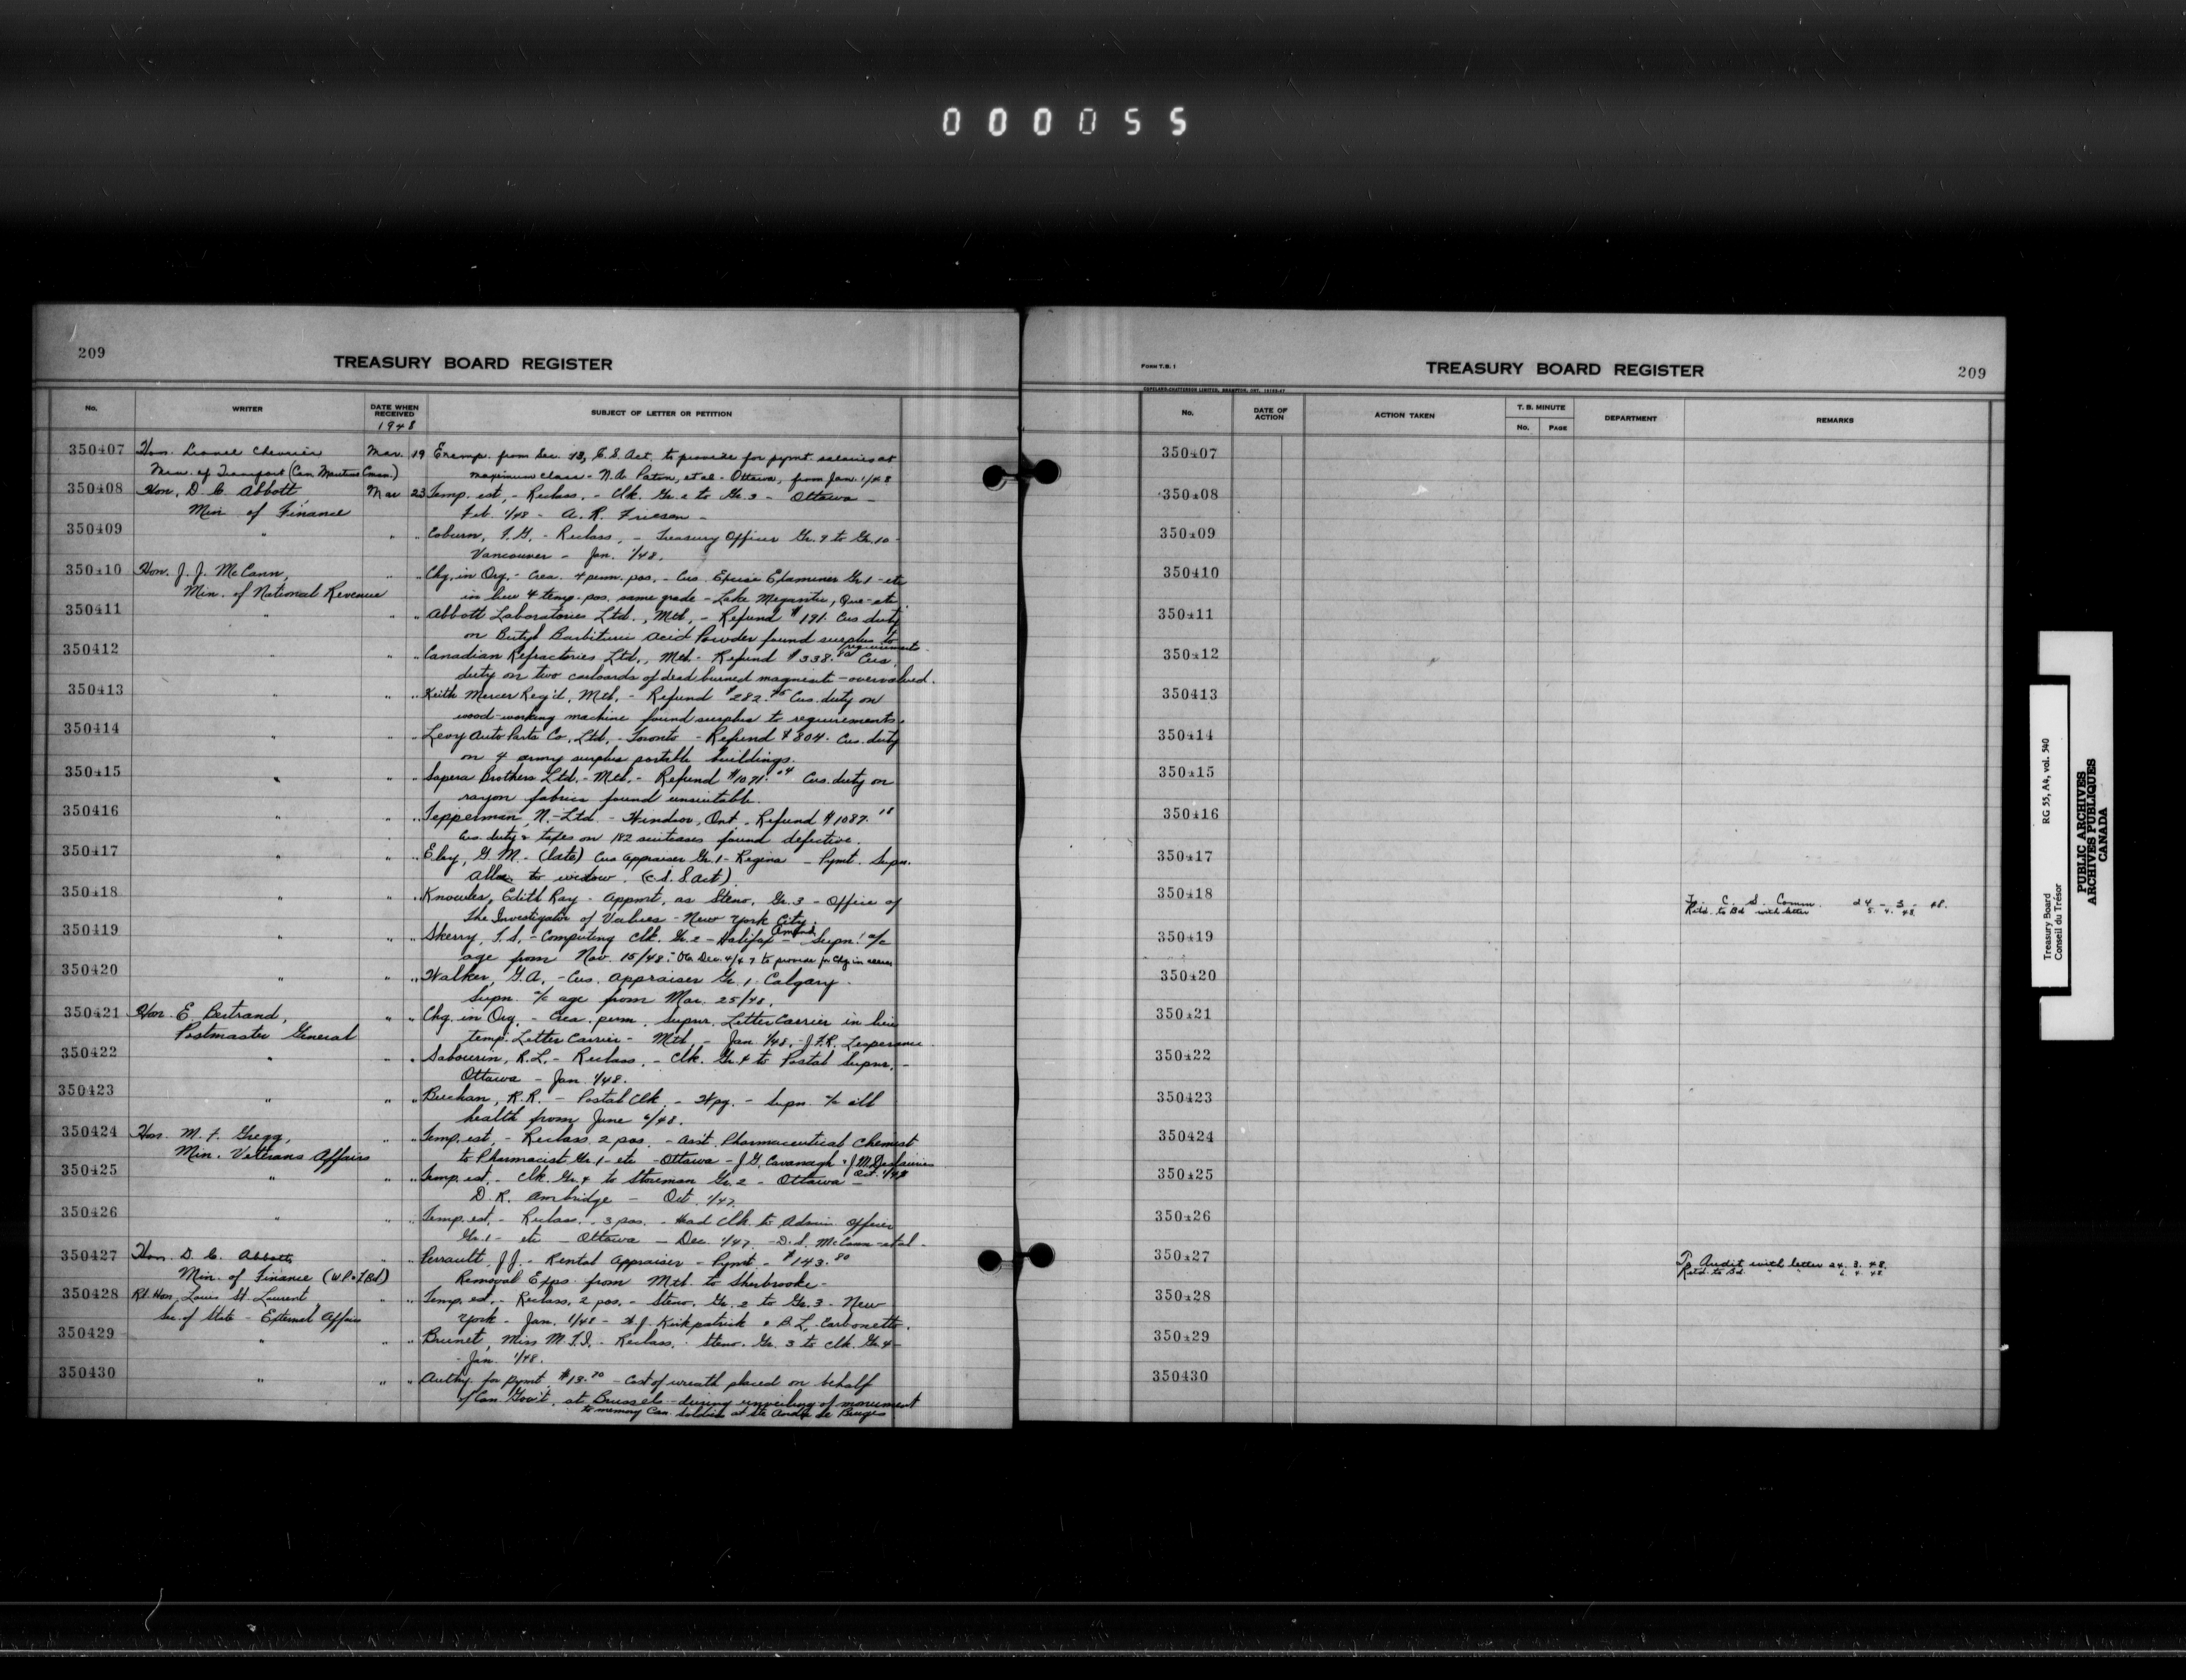 000055
209
TREASURY BOARD REGISTER
No. WRITER DATE WHEN RECEIVED SUBJECT OF LETTER OR PETITION
1948
350407 Hon. Lionel Chevrier Mar. 19 Exemp. from Sec. 13, C.S. Act, to provide for pymt salaries at
Min. of Transport (Can. Maritime Comm.) maximum class - N.A. Paton, et al - Ottawa, from Jan. 1/48
350408 Hon. D. C. Abbott, Mar 23 Temp. est, - Reclass. - Clk. Gr. 2 to Gr. 3 - Ottawa -
Min of Finance Feb. 1/48 - A. R. Friesen -
350409 " " " Coburn, F.G, - Reclass, - Treasury Officer Gr. 9 to Gr. 10 -
Vancouver - Jan. 1/48.
350410 Hon. J. J. McCann, " " Chg. in Org. - Crea. 4 perm. pos. - Cus. Excise Examiner Gr. 1 - etc
Min. of National Revenue in lieu 4 temp. pos. same grade - Lake Megantic, Que - etc.
350411 " " " Abbott Laboratories Ltd., Mtl, - Refund $191. Cus duty
on Butyl Barbituric Acid Powder found surplus to requirements.
350412 " " " Canadian Refractories Ltd., Mtl - Refund $338.80 Cus.
duty on two carloads of dead burned magnesite - overvalued.
350413 " " " Keith Mercer Reg'd, Mtl, - Refund $282.45 Cus. duty on
wood-working machine found surplus to requirements.
350414 " " " Levy Auto Parts Co. Ltd. - Toronto - Refund $804. Cus. duty
on 4 army surplus portable buildings.
350415 " " " Sapera Brothers Ltd. - Mtl. - Refund $1091.04 Cus. duty on
rayon fabrics found unsuitable.
350416 " " " Tepperman, N. - Ltd. - Windsor, Ont. Refund $1087.18
Cus. duty & taxes on 182 suitcases found defective.
350417 " " " Eby, G. M. - (late) Cus Appraiser Gr. 1 - Regina - Pymt. Supn.
Allce. to widow. (C.S.S Act)
350418 " " " Knowles, Edith Ray - Appmt, as Steno, Gr. 3 - Office of
The Investigator of Values - New York City.
350419 " " " Skerry, T.S. - Computing Clk. Gr. 2 - Halifax - Amend Supn. a/c
age from Nov. 15/48. - Dec. 4/47 to provide for Chg in
350420 " " " Walker, G.A, - Cus. Appraiser Gr. 1 - Calgary.
Supn. a/c age from Mar. 25/48.
350421 Hon. E. Bertrand, " " Chg. in Org. - Crea. perm. supnr. Letter Carrier in lieu
Postmaster General temp. Letter Carrier - Mtl. - Jan 1/48. - J.F.R. Lesperance.
350422 " " " Sabourin, R.L. - Reclass. - Clk. Gr. 4 to Postal Supnr. -
Ottawa - Jan 1/48.
350423 " " " Buchan, R.R. - Postal Clk. - Wpg. - Supn. a/c ill
health from June 6/48.
350424 Hon. M. F. Gregg, " " Temp. est, - Reclass. 2 pos. - Asst. Pharmaceutical Chemist
Min. Veterans Affairs to Pharmacist Gr. 1 - etc - Ottawa - J.G. Cavanagh & J.M. Deslauriers
Oct. 1/47
350425 " " " Temp. est. - Clk. Gr. 4 to Storeman Gr. 2 - Ottawa -
D. R. Ambridge - Oct. 1/47.
350426 " " " Temp. est. - Reclass. - 3 pos. - Head Clk. to Admin. Officer
Gr. 1 - etc - Ottawa - Dec. 1/47. - D.S. McCann - et al -
350427 Hon. D. C. Abbott, " " Perrault, J.J. - Rental Appraiser - Pymt. - $143.80
Min. of Finance (W.P.&T.Bd) Removal Exps. from Mtl. to Sherbrooke -
350428 Rt. Hon. Louis St. Laurent " " Temp. est. - Reclass. 2 pos. - Steno. Gr. 2 to Gr. 3 - New
Sec. of State - External Affairs York - Jan. 1/48 - H.J. Kirkpatrick & B.L. Carbonetto.
350429 " " " Brunet, Miss M.T.I. - Reclass. - Steno. Gr. 3 to Clk. Gr. 4 -
- Jan. 1/48.
350430 " " " Authy. for pymt. $13.70 - Cost of wreath placed on behalf
of Can. Gov't, at Brussels - during unveiling of monument
to memory Can. soldiers at Ste André de Bruges
FORM T.B. 1
TREASURY BOARD REGISTER
209
COPELAND-CHATTERSON LIMITED, BRAMPTON, ONT.
No. DATE OF ACTION ACTION TAKEN T. B. MINUTE No. PAGE DEPARTMENT REMARKS
350407
350408
350409
350410
350411
350412
350413
350414
350415
350416
350417
350418 To C. S. Comm. 24 - 3 - 48.
Retd. to Bd with letter 5. 4. 48.
350419
350420
350421
350422
350423
350424
350425
350426
350427 To Audit with letter 24. 3. 48.
Retd. to Bd. " " 6 4 48
350428
350429
350430
Treasury Board RG 55, A4, vol. 540
Conseil du Trésor
PUBLIC ARCHIVES
ARCHIVES PUBLIQUES
CANADA